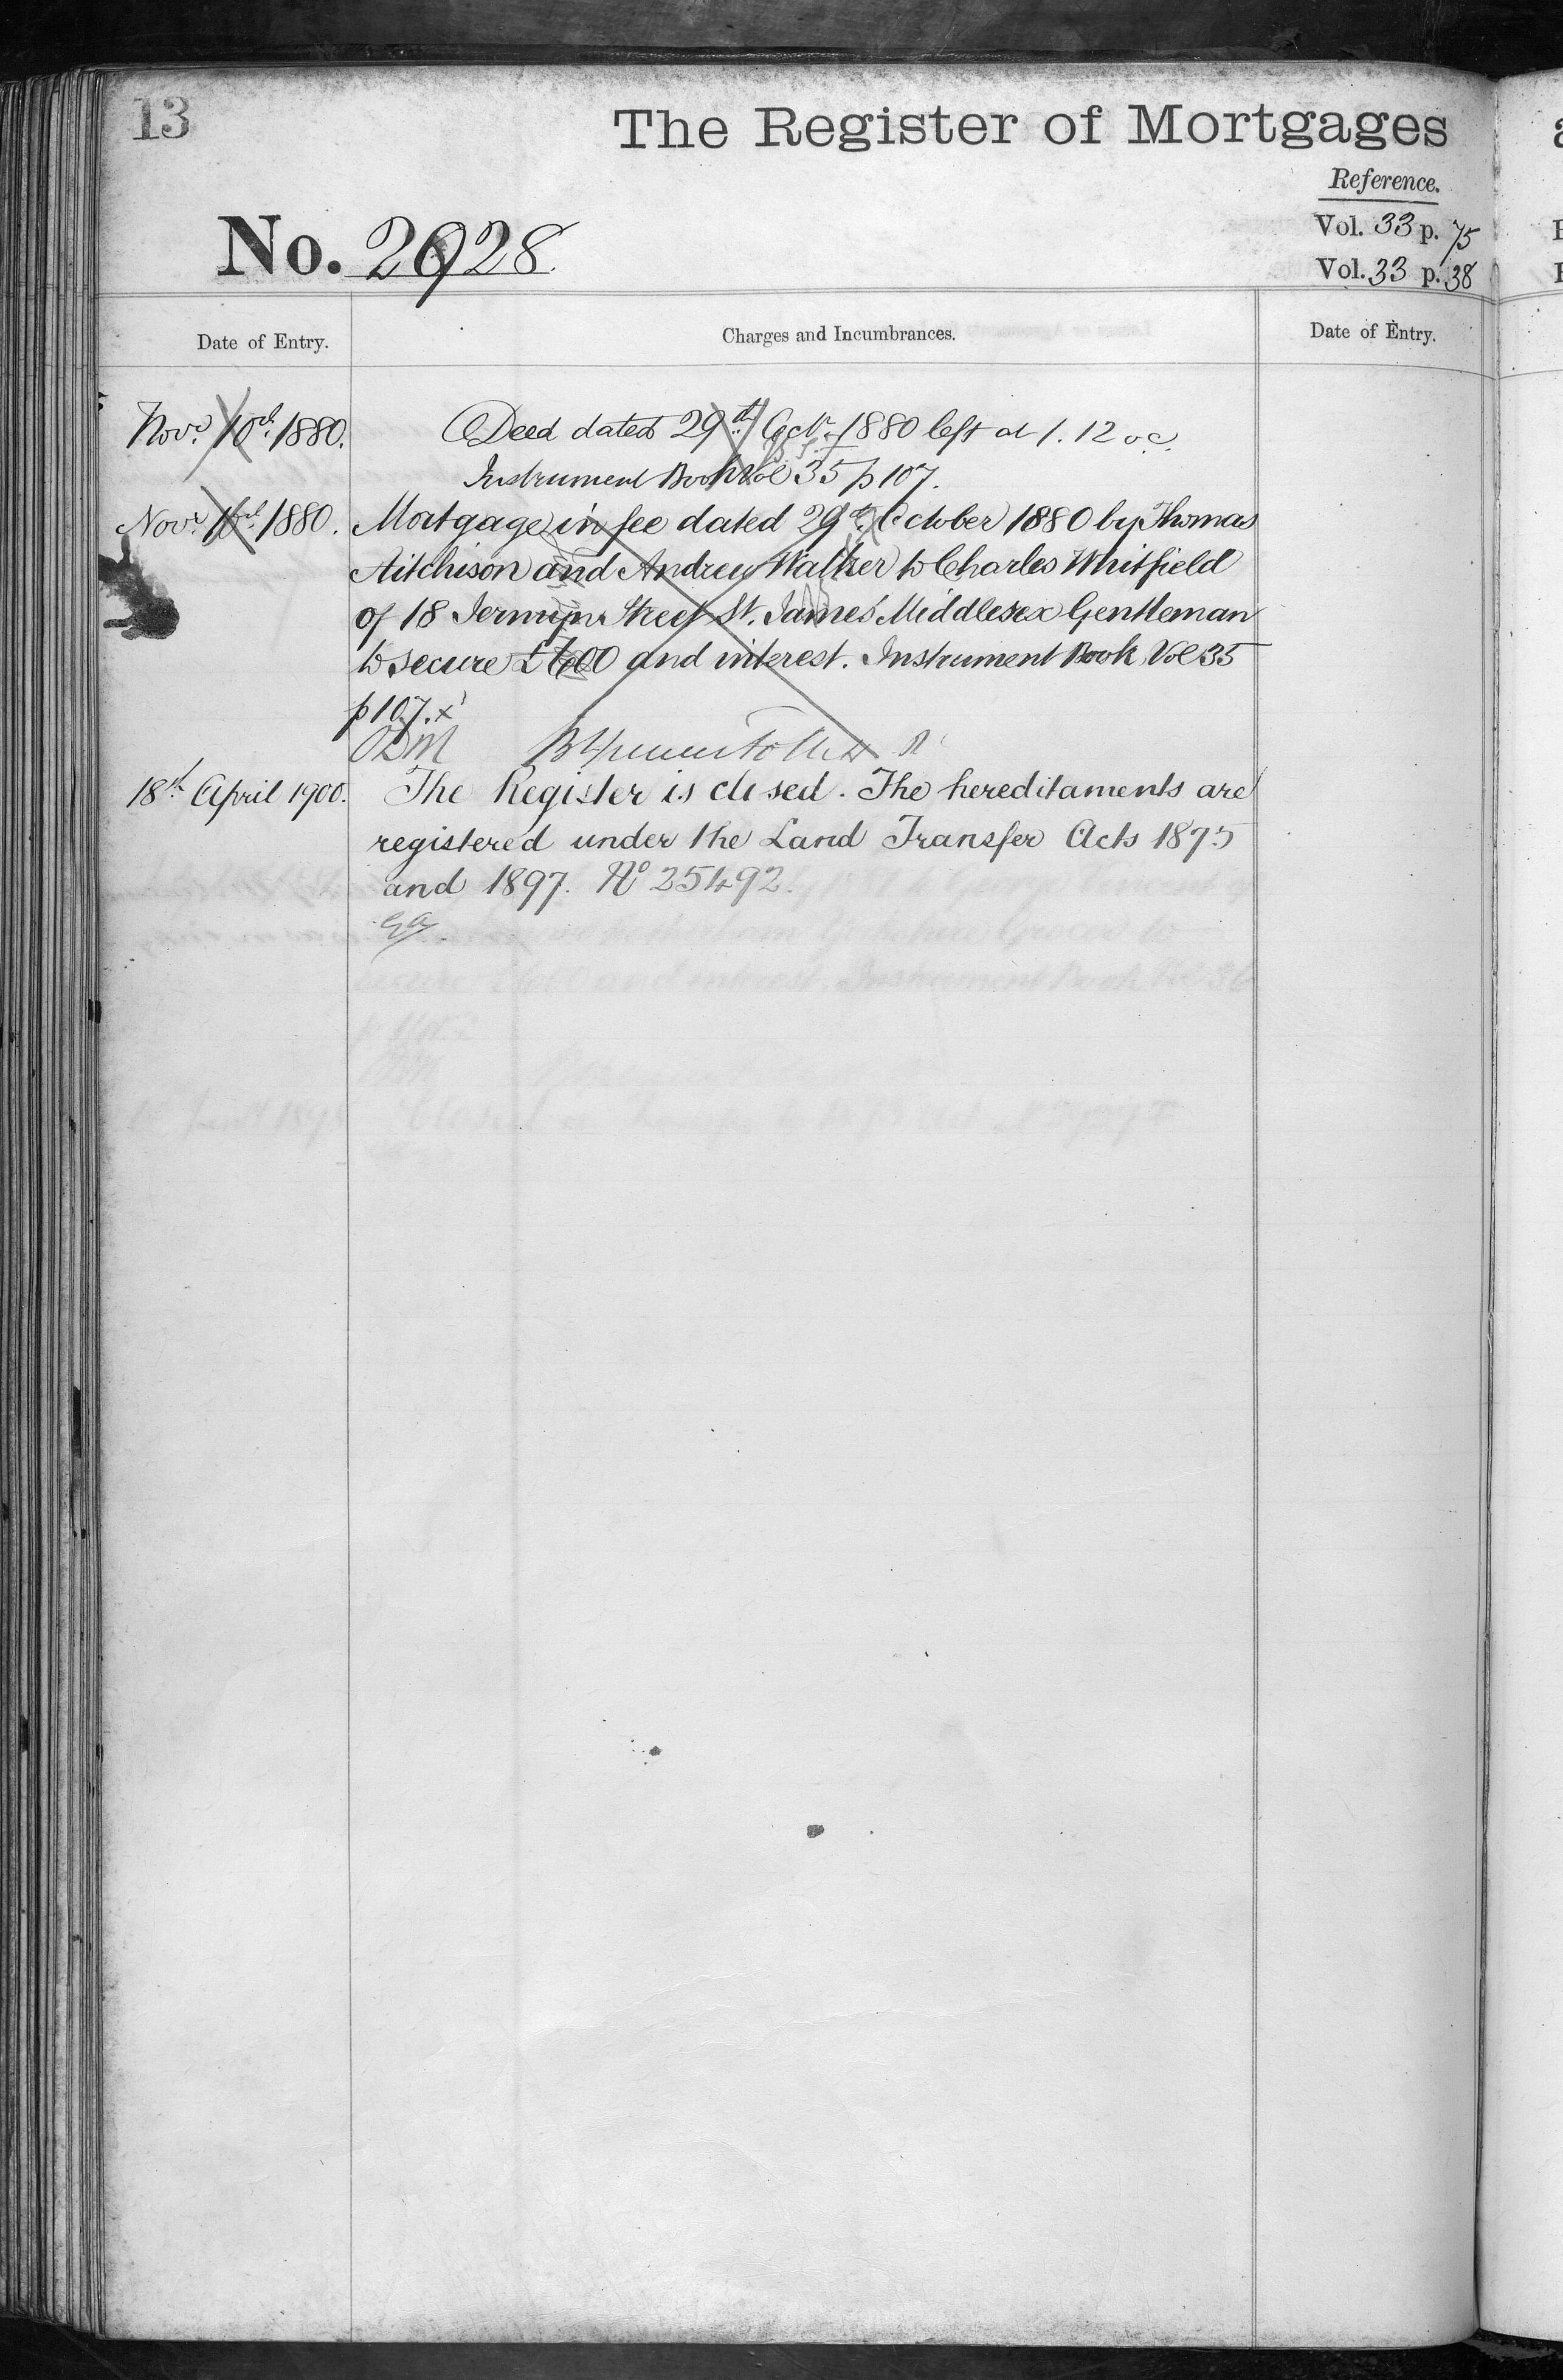 13
The Register of Mortgages
Reference.
No. 2928
Vol. 33 p. 75
Vol. 33 p. 38
Date of Entry.
Charges and Incumbrances.
Date of Entry.
Novr. 10th. 1880.
Deed dated 29th Octr. 1880 left at 1.12 oc.
Instrument Book Vol 35 p 107.
Novr. 10th. 1880.
Mortgage in fee dated 29th October 1880 by Thomas
Aitchison and Andrew Walker to Charles Whitfield
of 18 Jermyn Street St. James' Middlesex Gentleman
to secure £600 and interest. Instrument Book Vol 35
p 107. x
18th April 1900.
The Register is closed. The hereditaments are
registered under the Land Transfer Acts 1875
and 1897. No 25492.